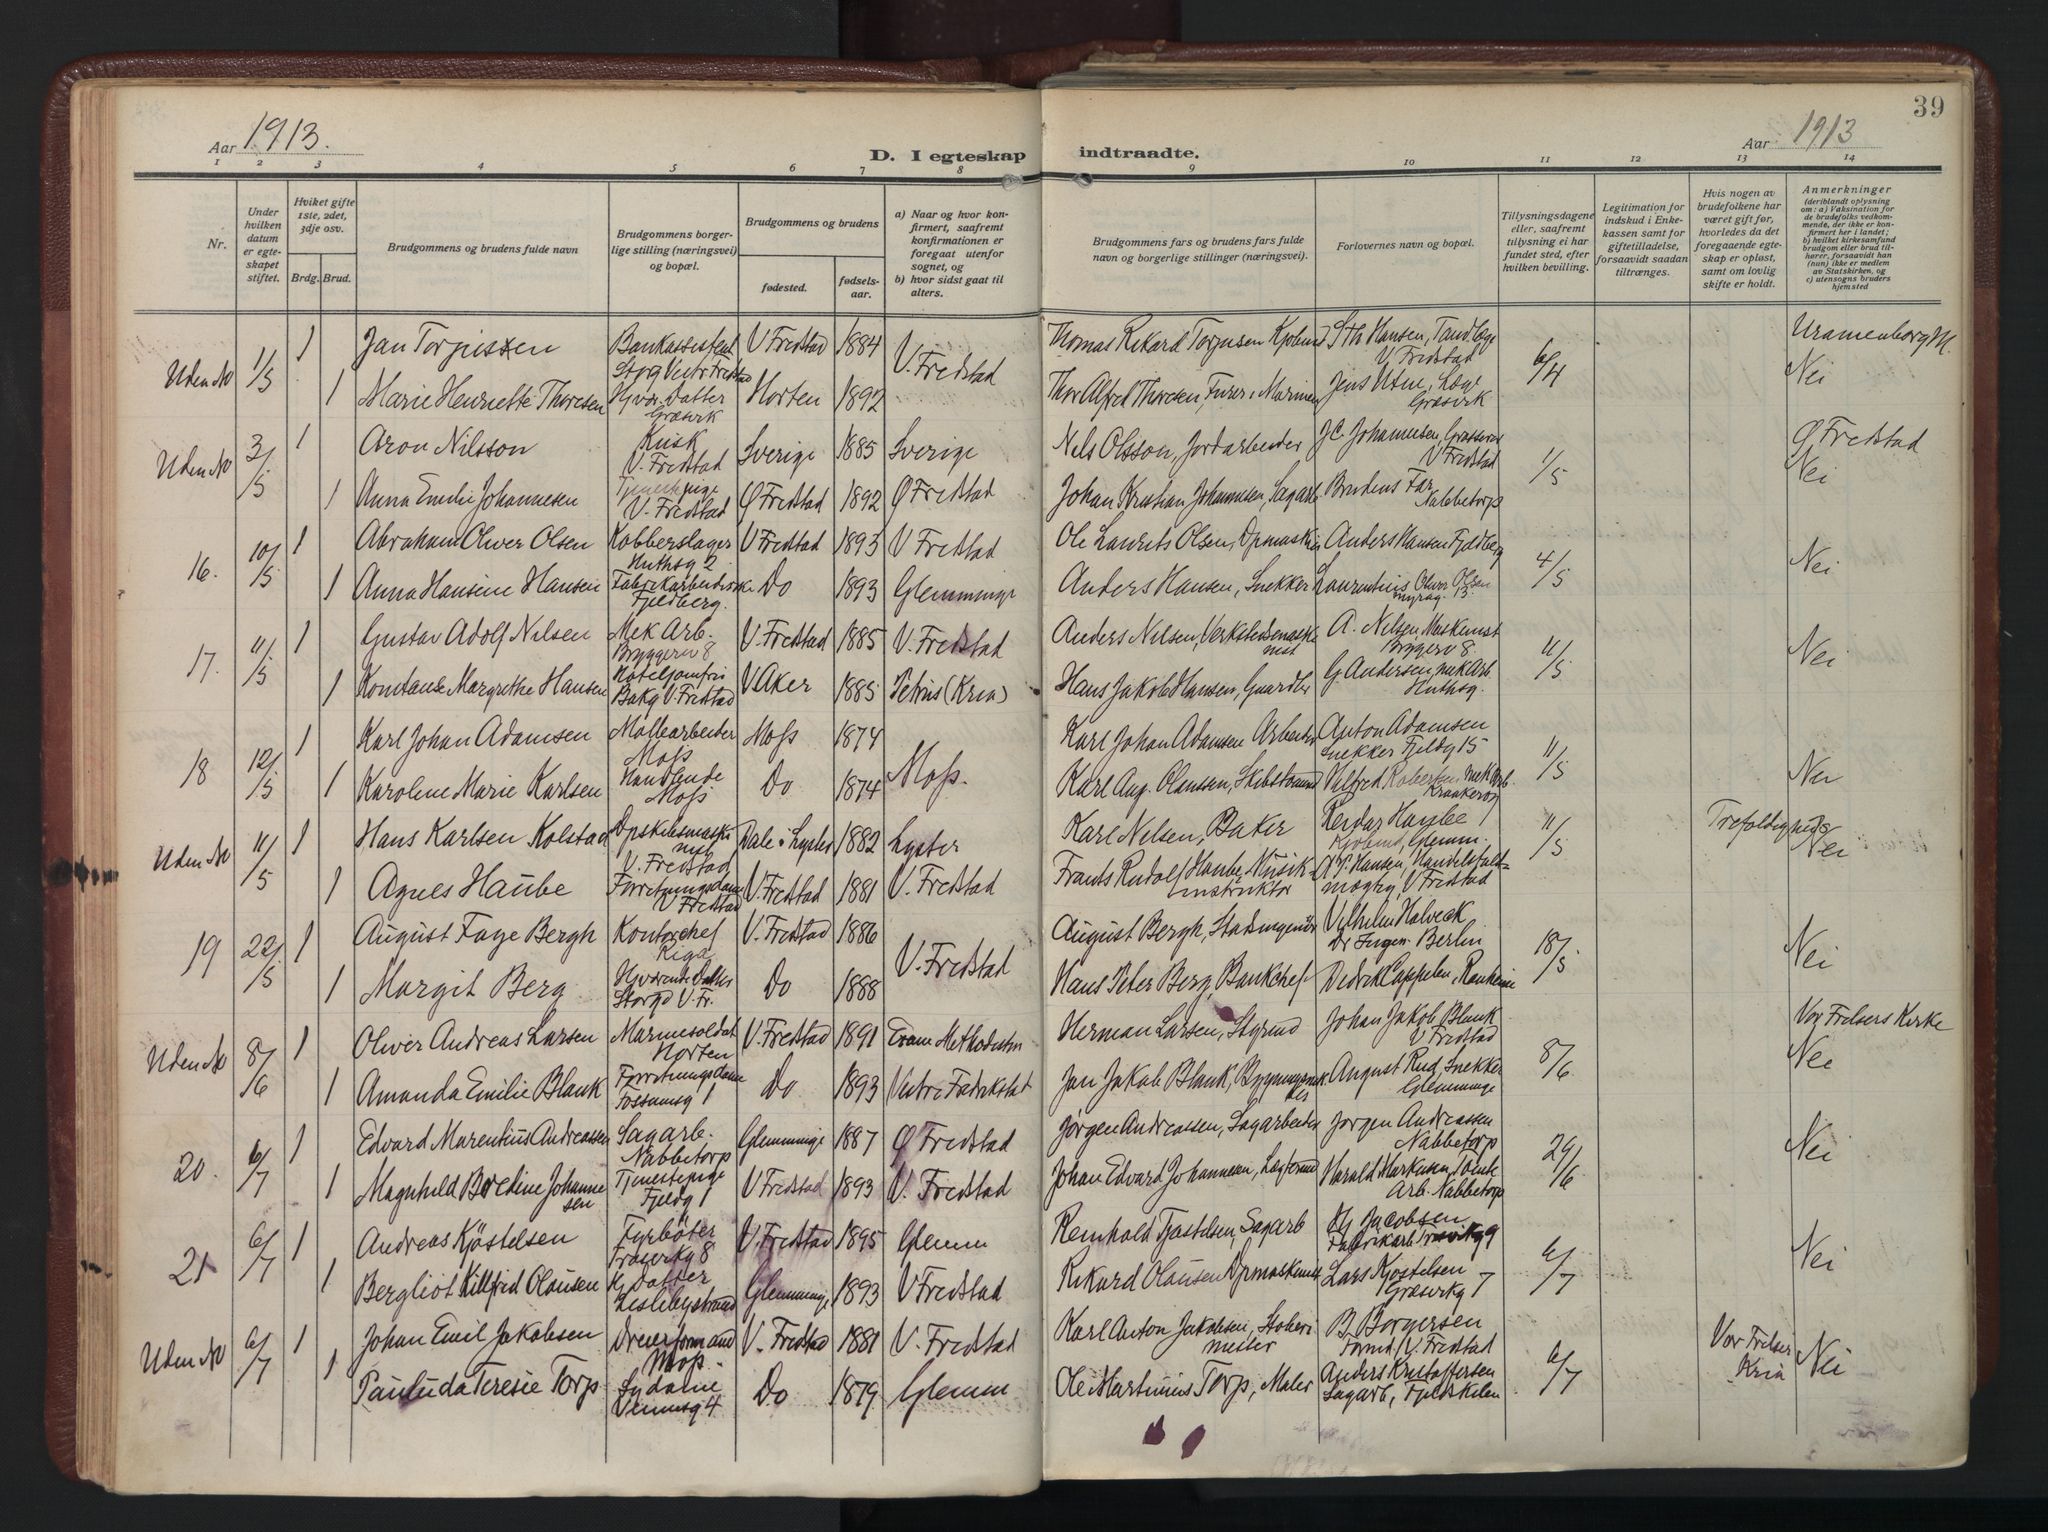 39
Aar 1913.
D. I egteskap indtraadte.
Aar 1913
1 2 3 4 5 6 7 8 9 10 11 12 13 14
Nr.
Under hvilken datum er egteskapet stiftet.
Hviket gifte 1ste, 2det, 3dje osv.
Brdg. Brud.
Brudgommens og brudens fulde navn
Brudgommens borgerlige stilling (næringsvei) og bopæl.
Brudgommens og brudens
fødested.
fødselsaar.
a) Naar og hvor konfirmert, saafremt konfirmationen er foregaat utenfor sognet, og
b) hvor sidst gaat til alters.
Brudgommens fars og brudens fars fulde navn og borgerlige stillinger (næringsvei).
Forlovernes navn og bopæl.
Tillysningsdagene eller, saafremt tillysning ei har fundet sted, efter hvilken bevilling.
Legitimation for indskud i Enkekassen samt for giftetilladelse, forsaavidt saadan tiltrænges.
Hvis nogen av brudefolkene har været gift før, hvorledes da det foregaaende egteskap er opløst, samt om lovlig skifte er holdt.
Anmerkninger
(deriblandt oplysning om: a) Vaksination for de brudefolks vedkommende, der ikke er konfirmert her i landet; b) hvilket kirkesamfund brudgom eller brud tilhører, forsaavidt han (hun) ikke er medlem av Statskirken, og c) utensogns bruders hjemsted
Uden No 1/5 1 Jan Torjussen Bankassistent Storg Vestre Fredstad V Fredstad 1884 V. Fredstad Thomas Rikard Torjusen Kjøbmd S Th Hansen, Tandlæge V Fredstad 6/4 Uranienborg M.
1 Marie Henriette Thoresen Hjv. Datter Græsvik Horten 1892 Thor Alfred Thoresen, Furer i Marinen Jens Utne, Læge Græsvik Nei
Uden No 3/5 1 Aron Nilsson Kusk V. Fredstad Sverige 1885 Sverige Nels Olsson, Jordarbeider J C. Johannesen, V Fredstad 1/5 Ø Fredstad
1 Anna Emilie Johannesen Tjenestepige V. Fredstad Ø Fredstad 1892 Ø Fredstad Johan Kristian Johannesen, Sagarb Brudens Far Nabbetorp Nei
16. 10/5 1 Abraham Oliver Olsen Kobberslager Huthsg 2 V Fredstad 1893 V Fredstad Ole Laurits Olsen, Dpmaskin Anders Hansen Fjeldberg 4/5
1 Anna Hansine Hansen Fabrikarbeiderske Fjeldberg. Do 1893 Glemminge Anders Hansen, Snekker Laurentius Oliver Olsen 13. Nei
17. 11/5 1 Gustav Adolf Nilsen Mek Arb. Bryggerv 8 V. Fredstad 1885 V. Fredstad Anders Nilsen, Verkstedsmaskinist A. Nilsen, Maskinist Bryggerv 8. 11/5 Nei
1 Konstanse Margrethe Hansen Hoteljomfru Bakg V. Fredstad V Aker 1885 Petrus (Kria) Hans Jakob Hansen, Gaardbr G. Andersen, mek Arb. Huthsg.
18 12/5 1 Karl Johan Adamsen Møllearbeider Moss Moss 1874 Moss. Karl Johan Adamsen Arbeider Anton Adamsen Snekker Fjeldg 15 11/5
1 Karolene Marie Karlsen Handlende Moss Do 1874 Karl Aug. Olaussen, Skibstømmd Vilfred Robertsen, mek Arb. Kraakerøy Nei
Uden No 11/5 1 Hans Karlsen Kolstad Dpskibsmaskinist V. Fredstad Dale i Lyster 1882 Lyster Karl Nelsen, Baker Reidar Haube Kjøbmd, Glemm. 11/5 Trefoldigheds Nei
1 Agnes Haube Forretningsdame V Fredstad V. Fredstad 1881 V. Fredstad Frants Rudolf Haube, Musikinstruktør A P. Hansen, Handelsfuldmægtig, V Fredstad
19 22/5 1 August Faye Bergh Kontorchef Riga V. Fredstad 1886 V. Fredstad August Bergh, Stadsingeniør Vilhelm Holveck Dr Ingen. Berlin 18/5
1 Margit Berg Hjvørende Datter Storgd V. Fr. Do 1888 Hans Peter Berg, Bankchef Didrik Cappelen, Ranheim Nei
Uden No 8/6 1 Oliver Andreas Larsen Marinesoldat Horten V. Fredstad 1891 Evam Methodisten Herman Larsen, Styrmd Johan Jakob Blank V Fredstad 8/6 Vor Frelsers Kirke
1 Amanda Emilie Blank Forretningsdame Fossumsg 1 Do 1893 Vestre Fredrikstad Jan Jakob Blank, Bygningssnkr. August Rud, Snekker Glemminge Nei
20. 6/7 1 Edvard Marentius Andreassen Sagarb. Nabbetorp Glemminge 1887 Ø Fredstad Jørgen Andreassen, Sagarbeider Jørgen Andreassen Nabbetorp 29/6 Nei
1 Magnhild Boredine Johannesen Tjenestepige Fjeldg 1 V Fredstad 1893 V. Fredstad Johan Edvard Johannesen, Harald Markusen, Tomte Arb. Nabbetorp
21 6/7 1 Andreas Kjöstelsen Fyrböter Traerkg 8 V. Fredstad 1895 Glemm Reinhold Tjøstelsen, Sagarb Hj Jacobsen Fabrikarb 9 6/7 Nei
1 Bergliot Killfrid Olausen Hj Datter Lislebystrand Glemminge 1893 V Fredstad Rikard Olausen Dpmaskinist Lars Kjøstelsen Græsvikg 7
Uden No 6/7 1 Johan Emil Jakobsen Dreierformand Moss. V. Fredstad 1881 V. Fredstad Karl Anton Jakobsen, Støberimester B. Borgersen Formd, V. Fredstad 6/7 Vor Frelser Kria Nei
1 Pauluda Teresie Torp Sydame Venusg 4 Do 1879 Glemm Ole Martinius Torp, Maler Anders Kristoffersen Sagarb, Fjeldskilen